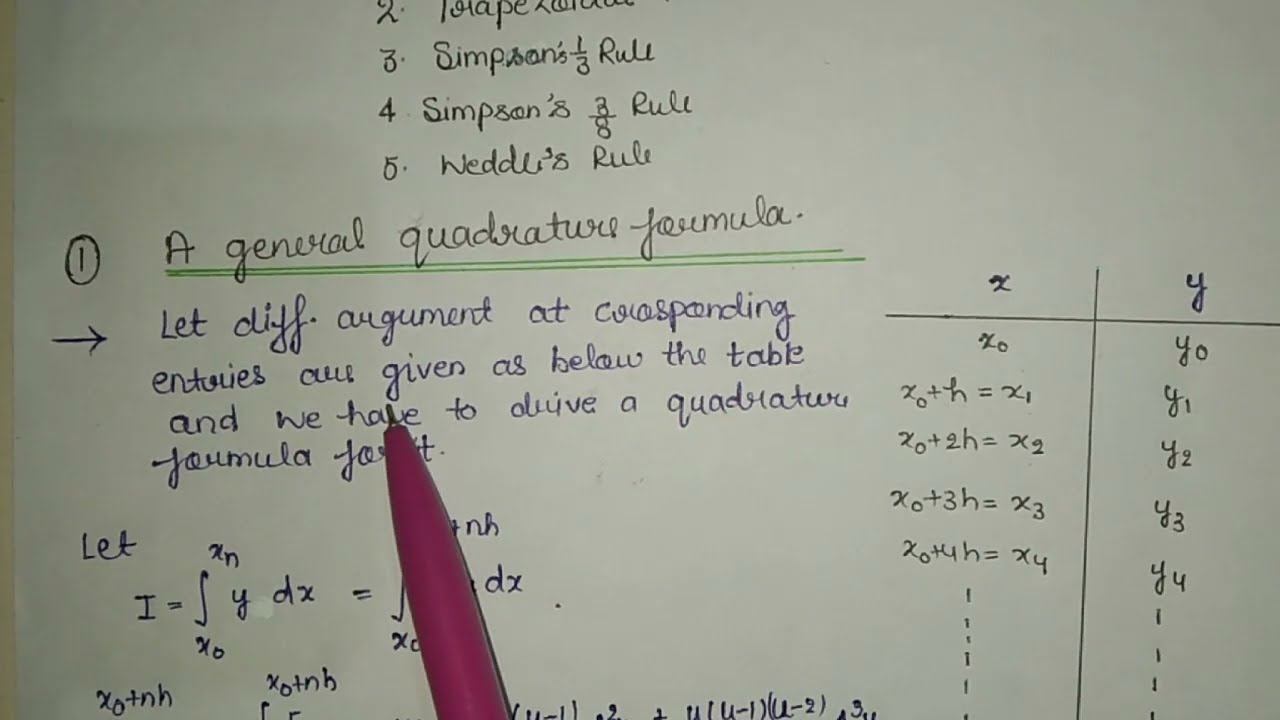 2.
3. Simpson's 1/3 Rule
4. Simpson's 3/8 Rule
5. Weddle's Rule
① A general quadrature formula.
→ Let diff. argument at coraspoending
entries are given as below the table
and we have to drive a quadrature
formula for it.
x | y
x₀ | y₀
x₀+h = x₁ | y₁
x₀+2h = x₂ | y₂
x₀+3h = x₃ | y₃
x₀+4h = x₄ | y₄
Let
I = ∫ₓ₀^xₙ y dx = ∫ₓ₀^+nh dx
x₀+nh x₀+nh
(u-1) 2 + u(u-1)(u-2) 3